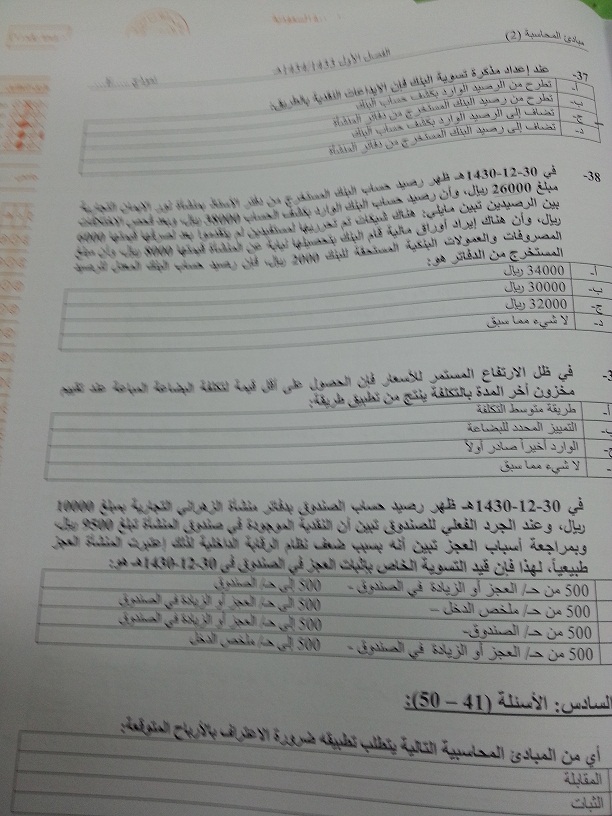 مبادئ المحاسبة (2)
الفصل الأول 1434/1433هـ
نموذج
37- عند إعداد مذكرة تسوية البنك فإن الإيداعات النقدية بالطريق:
أ- تطرح من الرصيد الوارد بكشف حساب البنك
ب- تطرح من رصيد البنك المستخرج من دفاتر المنشأة
ج- تضاف إلى الرصيد الوارد بكشف حساب البنك
د- تضاف إلى رصيد البنك المستخرج من دفاتر المنشأة
38- في 30-12-1430هـ ظهر رصيد حساب البنك المستخرج من دفاتر الأستاذ بمنشأة نور الإيمان التجارية
مبلغ 26000 ريال، وأن رصيد حساب البنك الوارد بكشف الحساب 38000 ريال، وبعد فحص الاختلافات
بين الرصيدين تبين مايلي: هناك شيكات تم تحريرها لمستفيدين لم يتقدموا بعد لصرفها قيمتها 6000
ريال، وأن هناك إيراد أوراق مالية قام البنك بتحصيلها نيابة عن المنشأة قيمتها 8000 ريال، وأن مبلغ
المصروفات والعمولات البنكية المستحقة للبنك 2000 ريال، فإن رصيد حساب البنك المعدل للرصيد
المستخرج من الدفاتر هو:
أ- 34000 ريال
ب- 30000 ريال
ج- 32000 ريال
د- لا شيء مما سبق
في ظل الارتفاع المستمر للأسعار فإن الحصول على أقل قيمة لتكلفة البضاعة المباعة عند تقييم
مخزون أخر المدة بالتكلفة ينتج من تطبيق طريقة:
أ- طريقة متوسط التكلفة
ب- التمييز المحدد للبضاعة
ج- الوارد أخيراً صادر أولاً
لا شيء مما سبق
في 30-12-1430هـ ظهر رصيد حساب الصندوق بدفاتر منشأة الزهراني التجارية بمبلغ 10000
ريال، وعند الجرد الفعلي للصندوق تبين أن النقدية الموجودة في صندوق المنشأة تبلغ 9500 ريال،
وبمراجعة أسباب العجز تبين أنه بسبب ضعف نظام الرقابة الداخلية لذلك إعتبرت المنشأة العجز
طبيعياً، لهذا فإن قيد التسوية الخاص بإثبات العجز في الصندوق في 30-12-1430هـ هو:
500 من حـ/ العجز أو الزيادة في الصندوق - 500 إلى حـ/ الصندوق
500 من حـ/ ملخص الدخل – 500 إلى حـ/ العجز أو الزيادة في الصندوق
500 من حـ/ الصندوق- 500 إلى حـ/ العجز أو الزيادة في الصندوق
500 من حـ/ العجز أو الزيادة في الصندوق - 500 إلى حـ/ ملخص الدخل
السادس: الأسئلة (41 – 50):
أي من المبادئ المحاسبية التالية يتطلب تطبيقه ضرورة الاعتراف بالأرباح المتوقعة:
المقابلة
الثبات